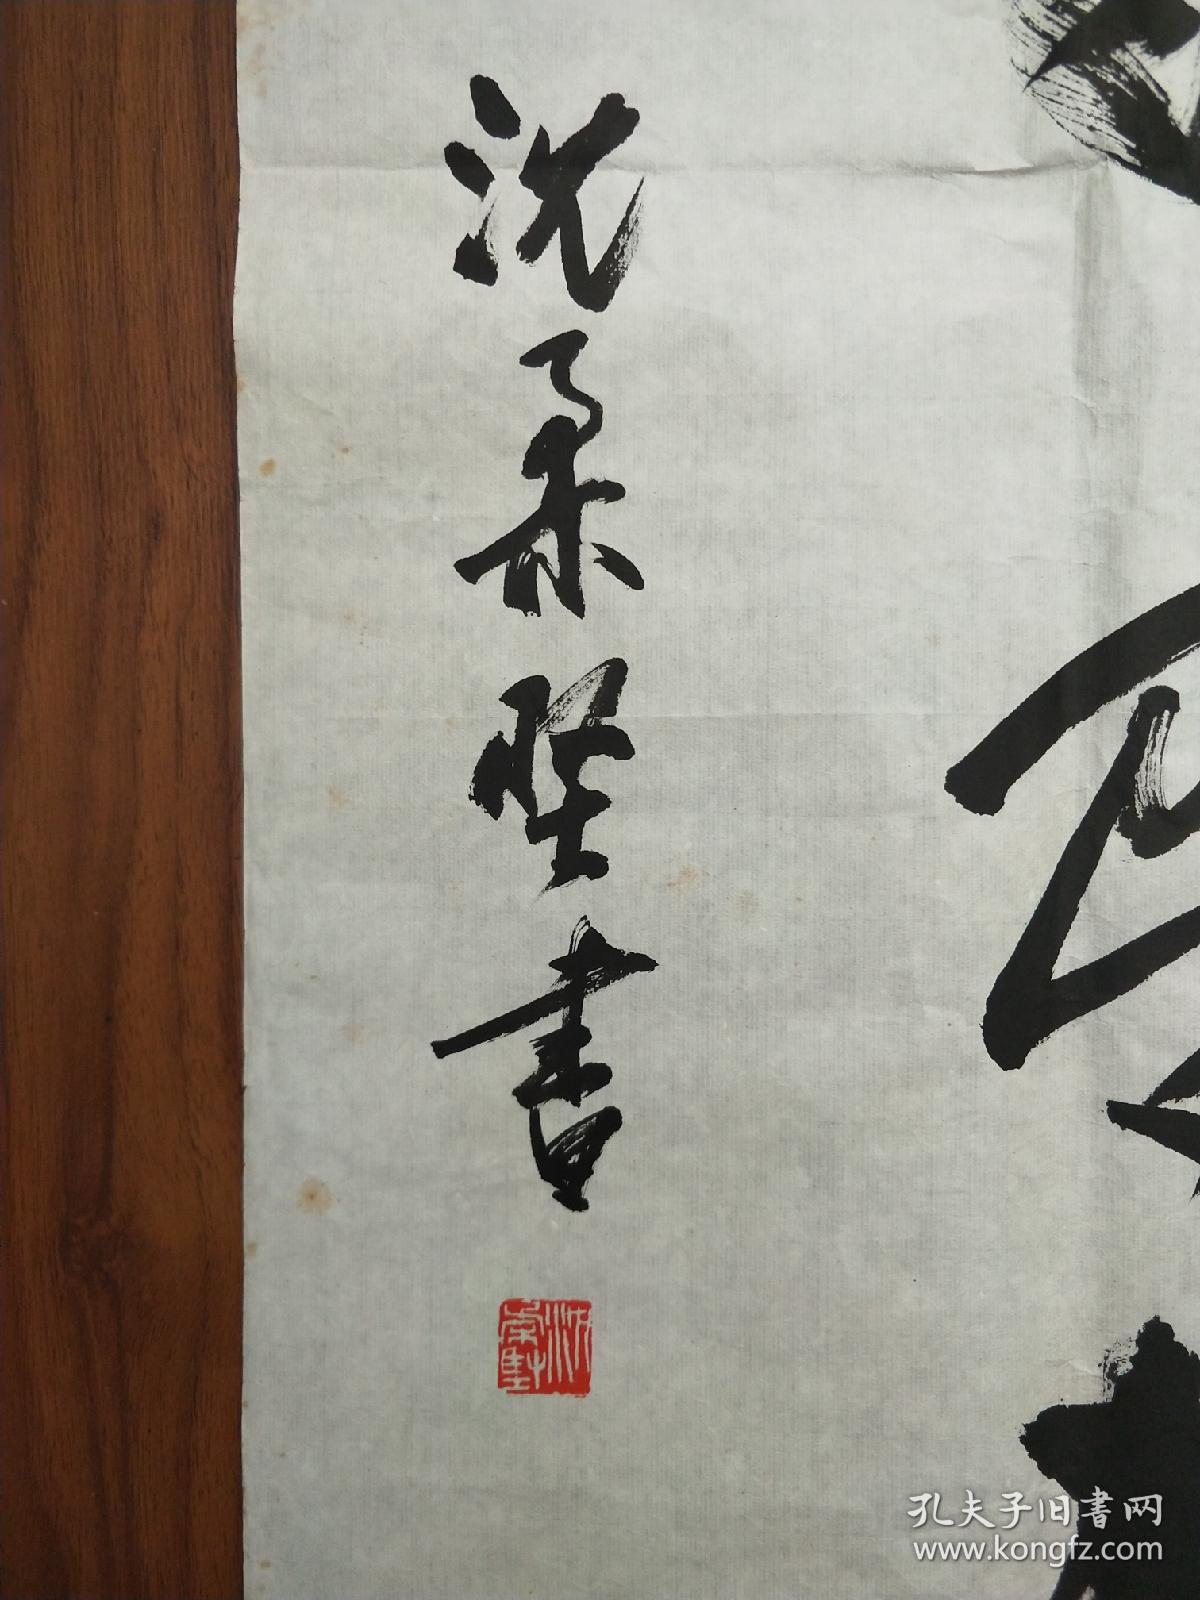 沈柔坚书
孔夫子旧書网
www.kongfz.com